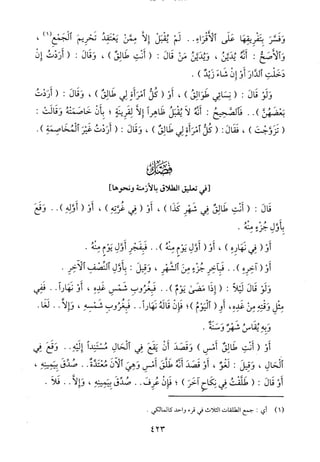 وَفَسَّرَ بِتَفْرِيقِهَا عَلَى ٱلْأَقْرَاءِ.. لَمْ يُقْبَلْ إِلَّا مِمَّنْ يَعْتَقِدُ تَحْرِيمَ ٱلْجَمْعِ(١)،
وَٱلْأَصَحُّ: أَنَّهُ يُدَيَّنُ، وَيُدَيَّنُ مَنْ قَالَ: (أَنْتِ طَالِقٌ)، وَقَالَ: (أَرَدْتُ إِنْ
دَخَلْتِ ٱلدَّارَ أَوْ إِنْ شَاءَ زَيْدٌ).
وَلَوْ قَالَ: (نِسَائِي طَوَالِقُ)، أَوْ (كُلُّ ٱمْرَأَةٍ لِي طَالِقٌ)، وَقَالَ: (أَرَدْتُ
بَعْضَهُنَّ).. فَٱلصَّحِيحُ: أَنَّهُ لَا يُقْبَلُ ظَاهِراً إِلَّا لِقَرِينَةٍ؛ بِأَنْ خَاصَمَتْهُ وَقَالَتْ:
(تَزَوَّجْتَ)، فَقَالَ: (كُلُّ ٱمْرَأَةٍ لِي طَالِقٌ)، وَقَالَ: (أَرَدْتُ غَيْرَ ٱلْمُخَاصِمَةِ).
فَصْلٌ
[في تعليق الطلاق بالأزمنة ونحوها]
قَالَ: (أَنْتِ طَالِقٌ فِي شَهْرِ كَذَا)، أَوْ (فِي غُرَّتِهِ)، أَوْ (أَوَّلِهِ).. وَقَعَ
بِأَوَّلِ جُزْءٍ مِنْهُ.
أَوْ (فِي نَهَارِهِ)، أَوْ (أَوَّلِ يَوْمٍ مِنْهُ).. فَبِفَجْرِ أَوَّلِ يَوْمٍ مِنْهُ.
أَوْ (آخِرِهِ).. فَبِآخِرِ جُزْءٍ مِنَ ٱلشَّهْرِ، وَقِيلَ: بِأَوَّلِ ٱلنِّصْفِ ٱلْآخِرِ.
وَلَوْ قَالَ لَيْلاً: (إِذَا مَضَىٰ يَوْمٌ).. فَبِغُرُوبِ شَمْسِ غَدِهِ، أَوْ نَهَاراً.. فَفِي
مِثْلِ وَقْتِهِ مِنْ غَدِهِ، أَوِ (ٱلْيَوْمُ)؛ فَإِنْ قَالَهُ نَهَاراً.. فَبِغُرُوبِ شَمْسِهِ، وَإِلَّا.. لَغَا.
وَبِهِ يُقَاسُ شَهْرٌ وَسَنَةٌ.
أَوْ (أَنْتِ طَالِقٌ أَمْسِ) وَقَصَدَ أَنْ يَقَعَ فِي ٱلْحَالِ مُسْتَنِداً إِلَيْهِ.. وَقَعَ فِي
ٱلْحَالِ، وَقِيلَ: لَغْوٌ، أَوْ قَصَدَ أَنَّهُ طَلَّقَ أَمْسِ وَهِيَ ٱلْآنَ مُعْتَدَّةٌ.. صُدِّقَ بِيَمِينِهِ،
أَوْ قَالَ: (طَلَّقْتُ فِي نِكَاحٍ آخَرَ)؛ فَإِنْ عُرِفَ.. صُدِّقَ بِيَمِينِهِ، وَإِلَّا.. فَلَا.
(١) أي: جمع الطلقات الثلاث في قرء واحد كالمالكي.
٤٢٣